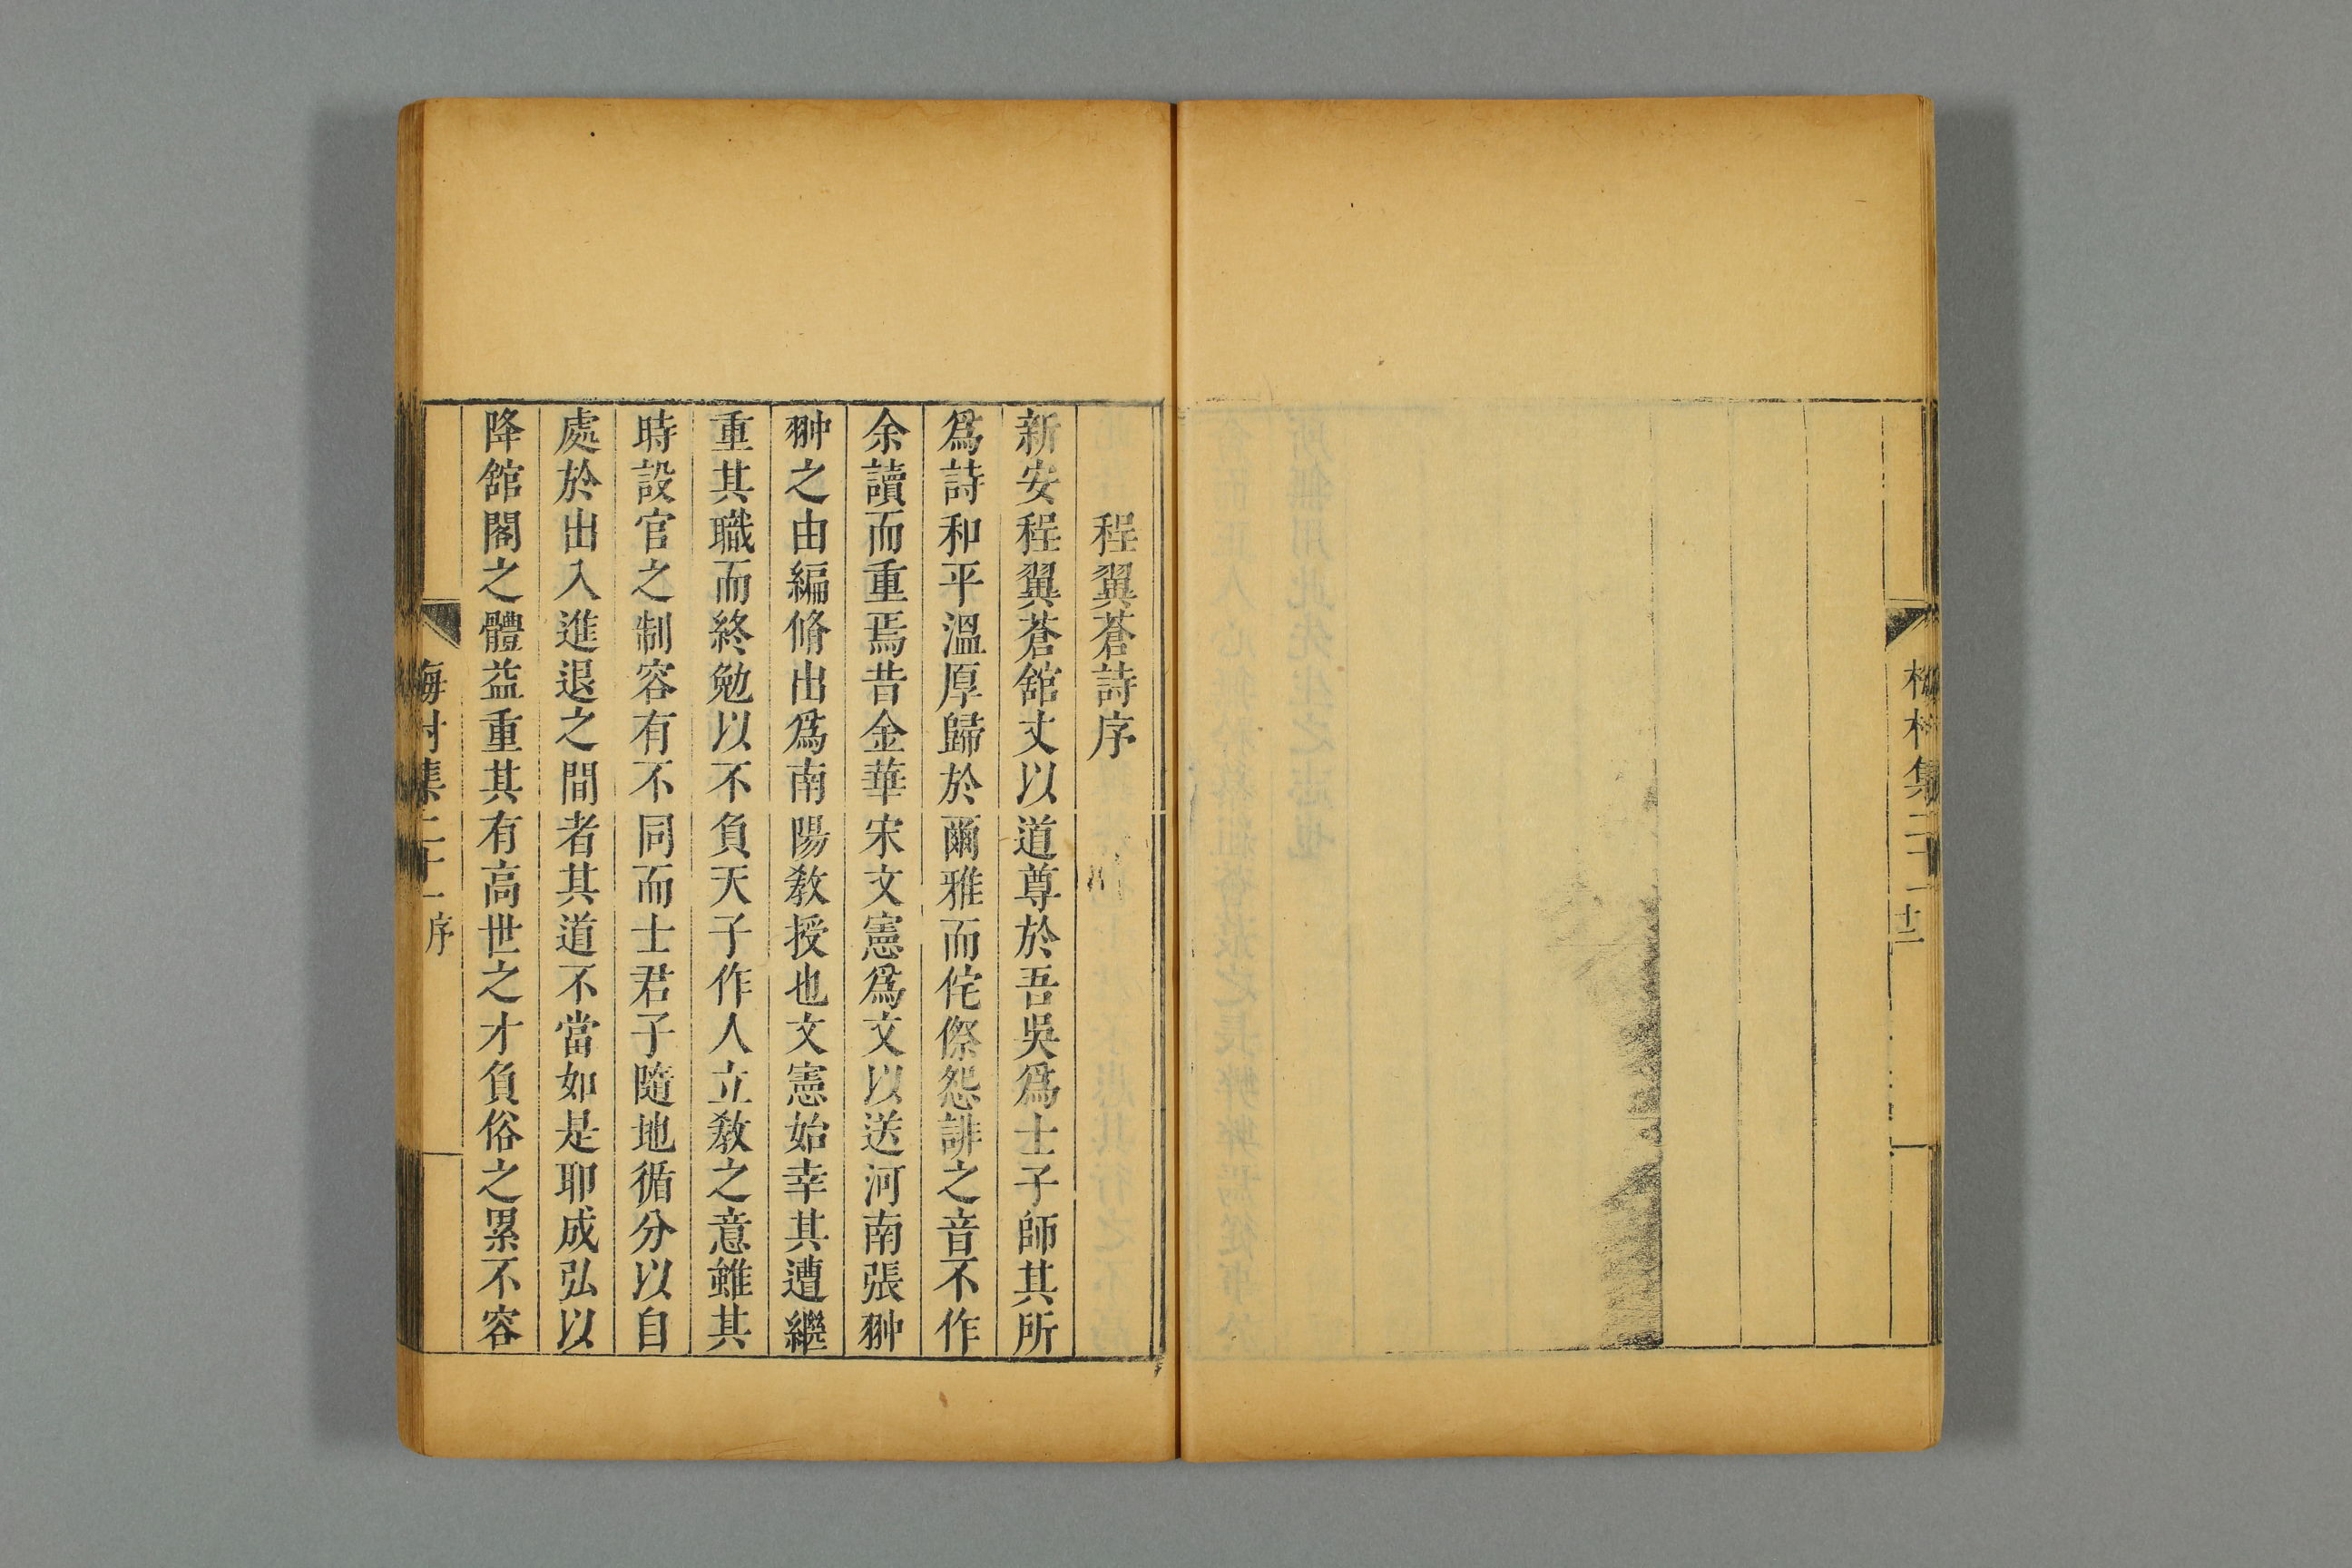 梅村集二十一 十二
程翼蒼詩序
新安程翼蒼舘丈以道尊於吾吳爲士子師其所
爲詩和平溫厚歸於爾雅而侘傺怨誹之音不作
余讀而重焉昔金華宋文憲爲文以送河南張翀
翀之由編脩出爲南陽敎授也文憲始幸其遭繼
重其職而終勉以不負天子作人立敎之意雖其
時設官之制容有不同而士君子隨地循分以自
處於出入進退之間者其道不當如是耶成弘以
降舘閣之體益重其有高世之才負俗之累不容
梅村集二十一序